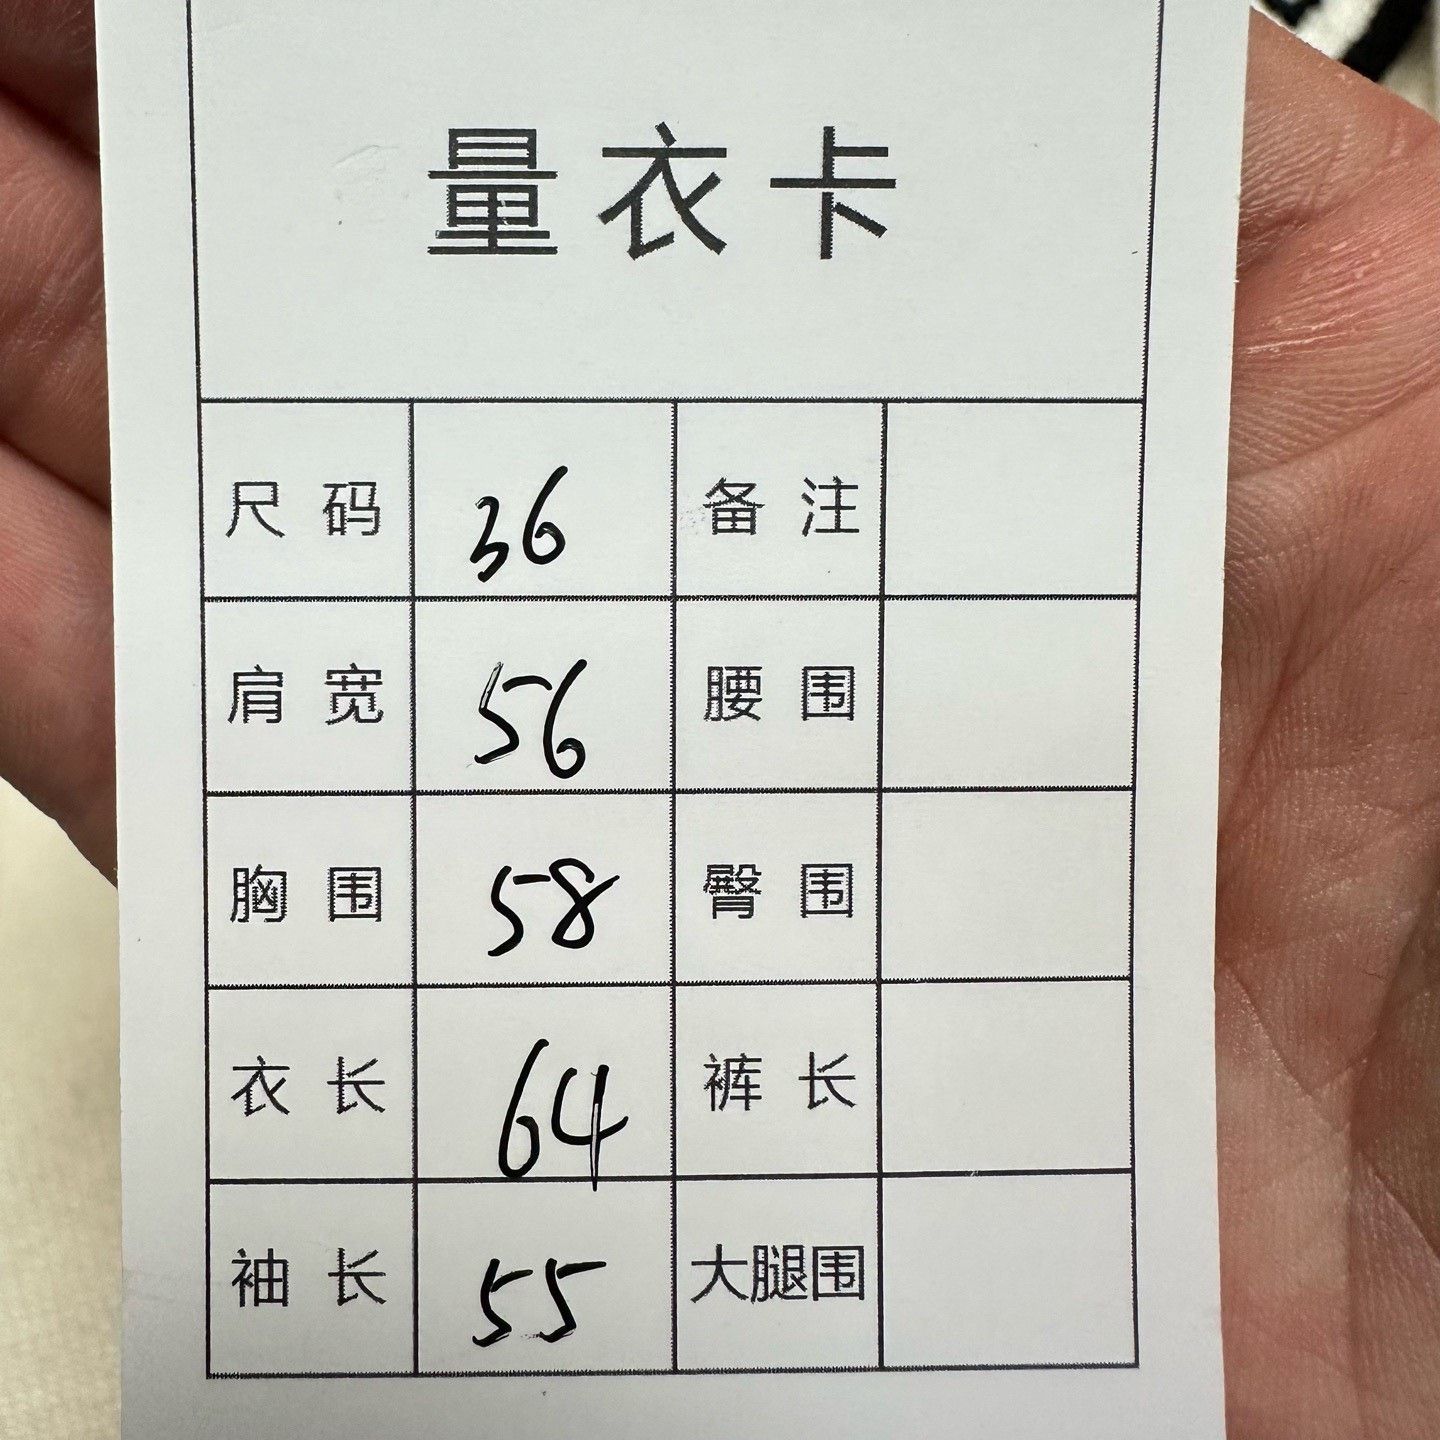 量衣卡
尺码 36 备注
肩宽 56 腰围
胸围 58 臀围
衣长 64 裤长
袖长 55 大腿围